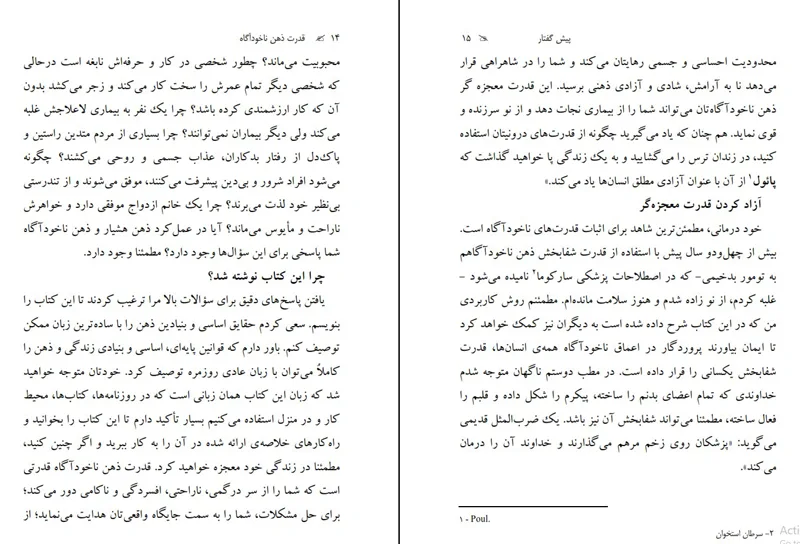 ۱۴ قدرت ذهن ناخودآگاه
محبوبیت می‌ماند؟ چطور شخصی در کار و حرفه‌اش نابغه است درحالی
که شخصی دیگر تمام عمرش را سخت کار می‌کند و زجر می‌کشد بدون
آن که کار ارزشمندی کرده باشد؟ چرا یک نفر به بیماری لاعلاجش غلبه
می‌کند ولی دیگر بیماران نمی‌توانند؟ چرا بسیاری از مردم متدین راستین و
پاک‌دل از رفتار بدکاران، عذاب جسمی و روحی می‌کشند؟ چگونه
می‌شود افراد شرور و بی‌دین پیشرفت می‌کنند، موفق می‌شوند و از تندرستی
بی‌نظیر خود لذت می‌برند؟ چرا یک خانم ازدواج موفقی دارد و خواهرش
ناراحت و مأیوس می‌ماند؟ آیا در عمل‌کرد ذهن هشیار و ذهن ناخودآگاه
شما پاسخی برای این سؤال‌ها وجود دارد؟ مطمئنا وجود دارد.
چرا این کتاب نوشته شد؟
یافتن پاسخ‌های دقیق برای سؤالات بالا مرا ترغیب کردند تا این کتاب را
بنویسم. سعی کردم حقایق اساسی و بنیادین ذهن را با ساده‌ترین زبان ممکن
توصیف کنم. باور دارم که قوانین پایه‌ای، اساسی و بنیادی زندگی و ذهن را
کاملاً می‌توان با زبان عادی روزمره توصیف کرد. خودتان متوجه خواهید
شد که زبان این کتاب همان زبانی است که در روزنامه‌ها، کتاب‌ها، محیط
کار و در منزل استفاده می‌کنیم بسیار تأکید دارم تا این کتاب را بخوانید و
راه‌کارهای خلاصه‌ی ارائه شده در آن را به کار ببرید و اگر چنین کنید،
مطمئنا در زندگی خود معجزه خواهید کرد. قدرت ذهن ناخودآگاه قدرتی
است که شما را از سر درگمی، ناراحتی، افسردگی و ناکامی دور می‌کند؛
برای حل مشکلات، شما را به سمت جایگاه واقعی‌تان هدایت می‌نماید؛ از
پیش گفتار ۱۵
محدودیت احساسی و جسمی رهایتان می‌کند و شما را در شاهراهی قرار
می‌دهد تا به آرامش، شادی و آزادی ذهنی برسید. این قدرت معجزه گر
ذهن ناخودآگاه‌تان می‌تواند شما را از بیماری نجات دهد و از نو سرزنده و
قوی نماید. هم چنان که یاد می‌گیرید چگونه از قدرت‌های درونیتان استفاده
کنید، در زندان ترس را می‌گشایید و به یک زندگی پا خواهید گذاشت که
پائول۱ از آن با عنوان آزادی مطلق انسان‌ها یاد می‌کند.»
آزاد کردن قدرت معجزه‌گر
خود درمانی، مطمئن‌ترین شاهد برای اثبات قدرت‌های ناخودآگاه است.
بیش از چهل‌ودو سال پیش با استفاده از قدرت شفابخش ذهن ناخودآگاهم
به تومور بدخیمی- که در اصطلاحات پزشکی سارکوما۲ نامیده می‌شود -
غلبه کردم، از نو زاده شدم و هنوز سلامت مانده‌ام. مطمئنم روش کاربردی
من که در این کتاب شرح داده شده است به دیگران نیز کمک خواهد کرد
تا ایمان بیاورند پروردگار در اعماق ناخودآگاه همه‌ی انسان‌ها، قدرت
شفابخش یکسانی را قرار داده است. در مطب دوستم ناگهان متوجه شدم
خداوندی که تمام اعضای بدنم را ساخته، پیکرم را شکل داده و قلبم را
فعال ساخته، مطمئنا می‌تواند شفابخش آن نیز باشد. یک ضرب‌المثل قدیمی
می‌گوید: «پزشکان روی زخم مرهم می‌گذارند و خداوند آن را درمان
می‌کند».
۱ - Poul.
۲- سرطان استخوان
Acti